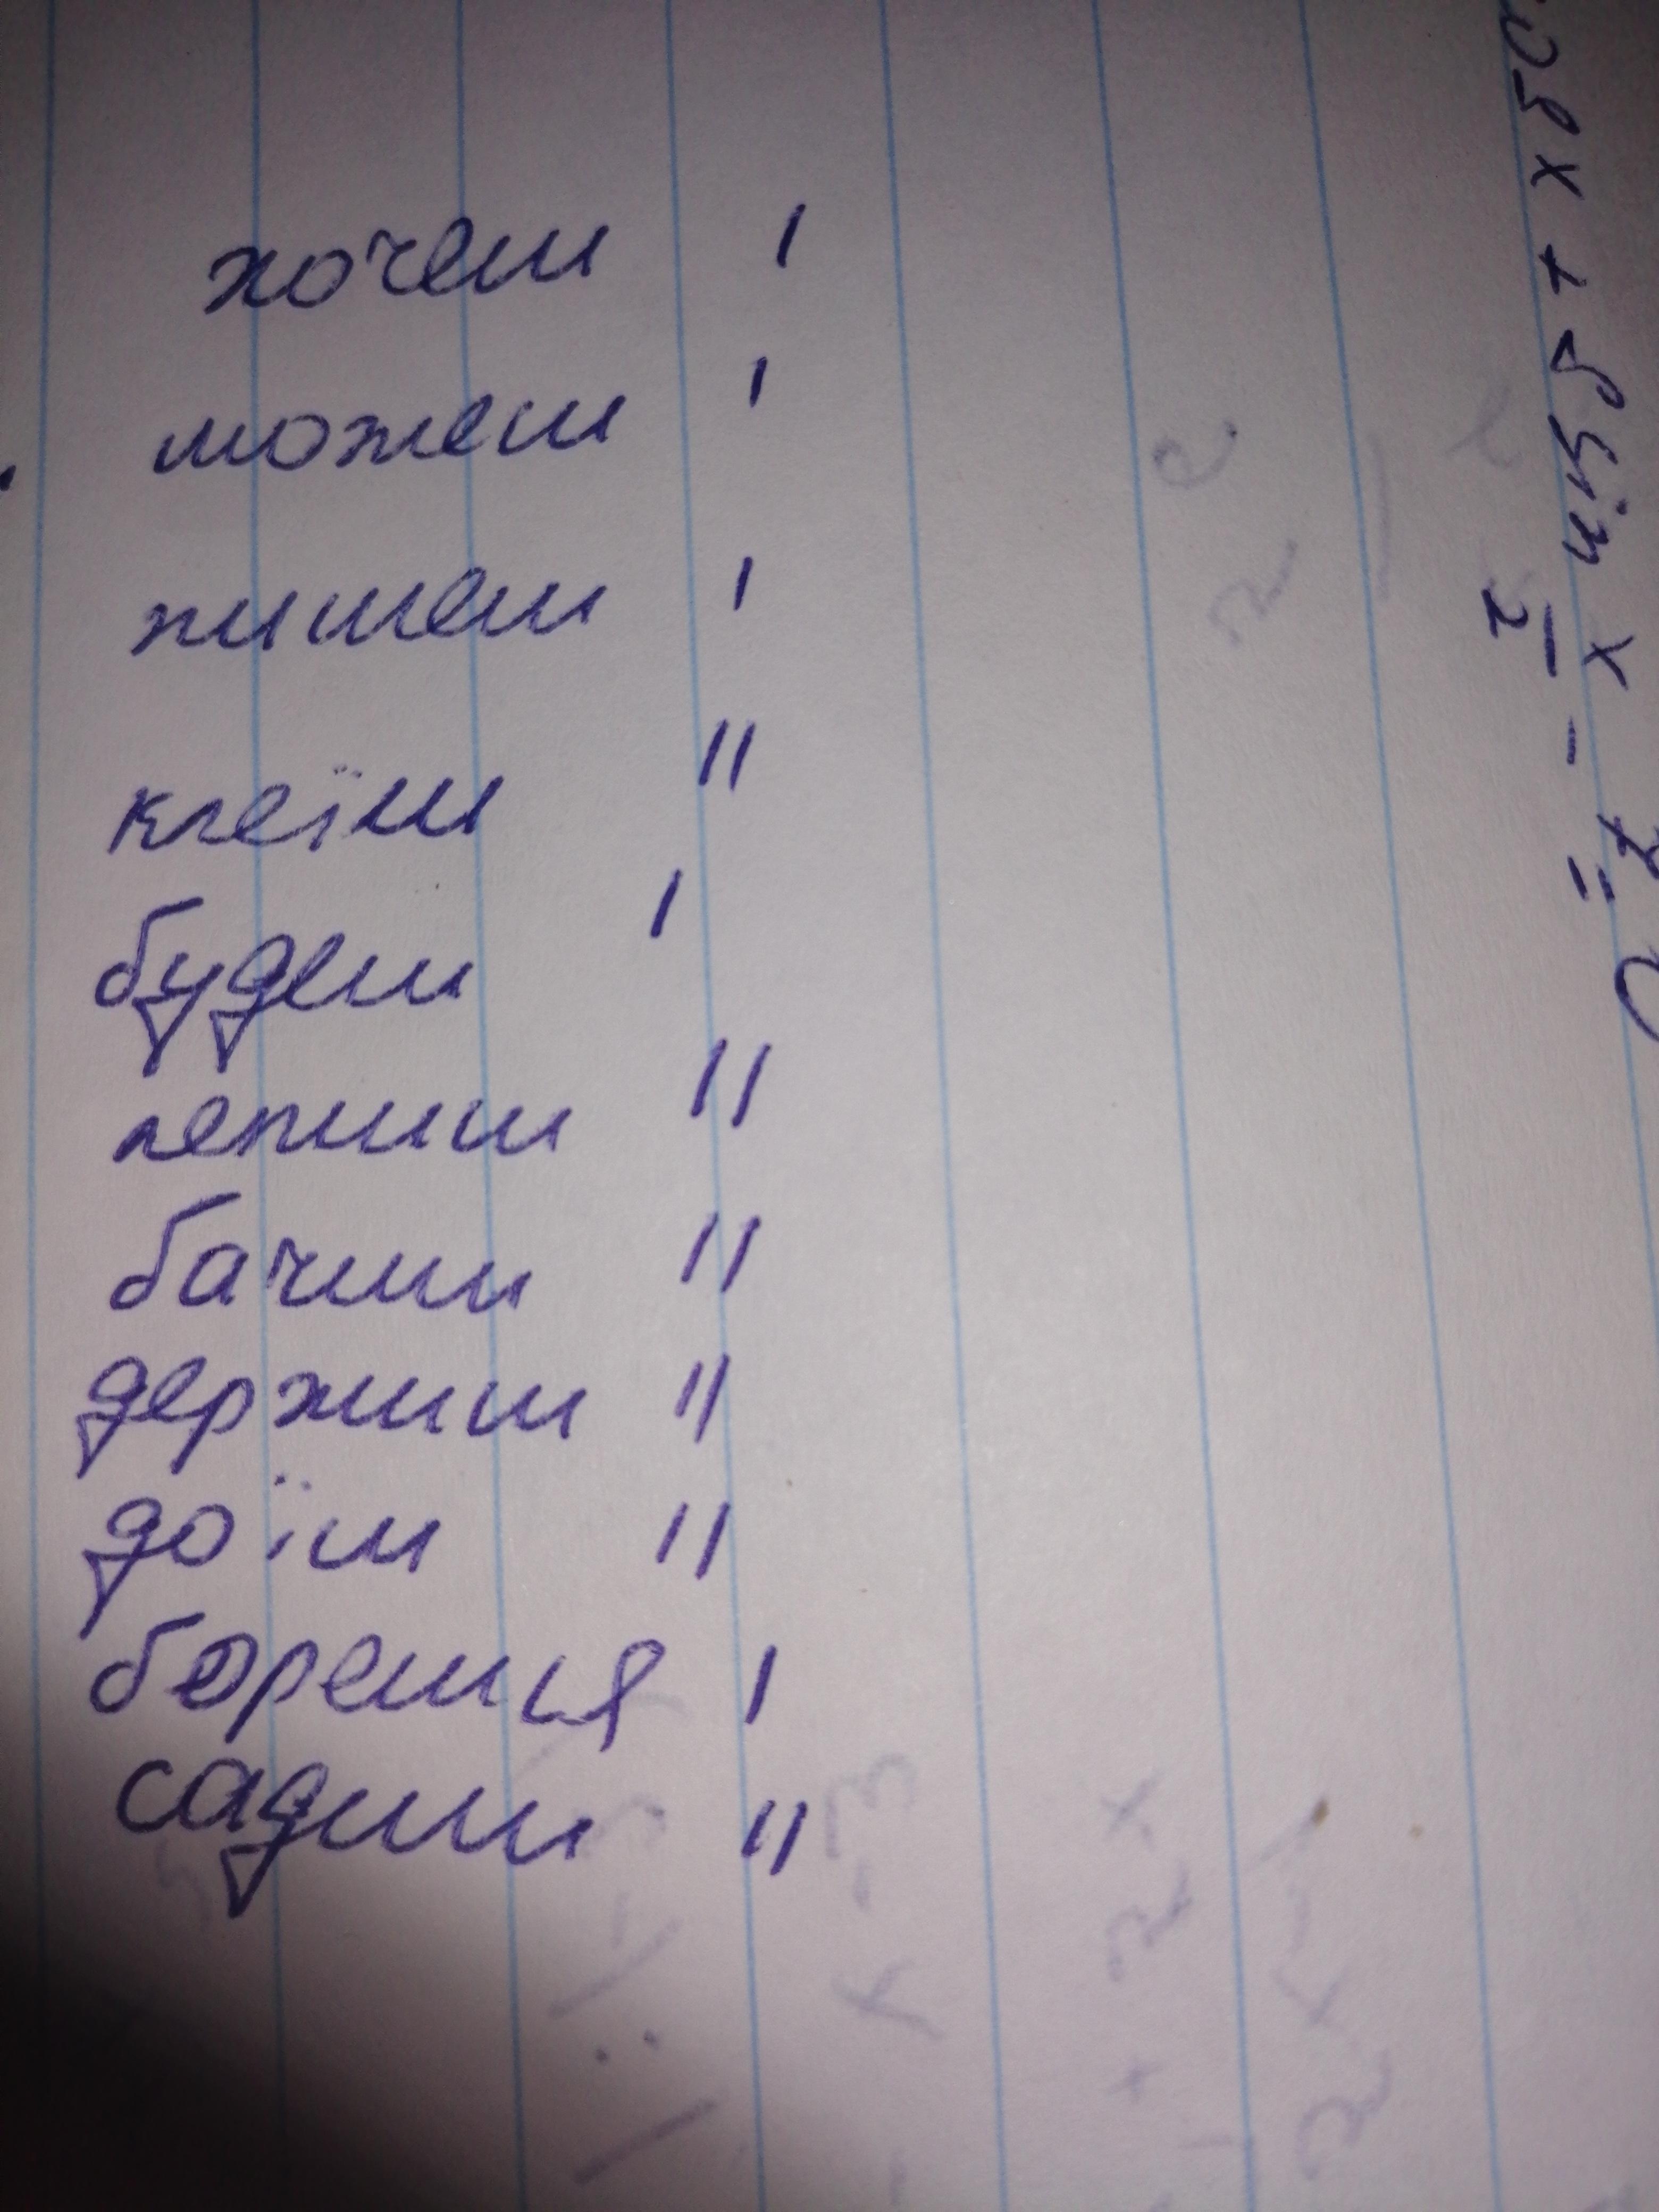 хочеш I
можеш I
пишеш I
клеїш II
будеш I
лепиш II
бачиш II
держиш II
доїш II
борешся I
садиш II